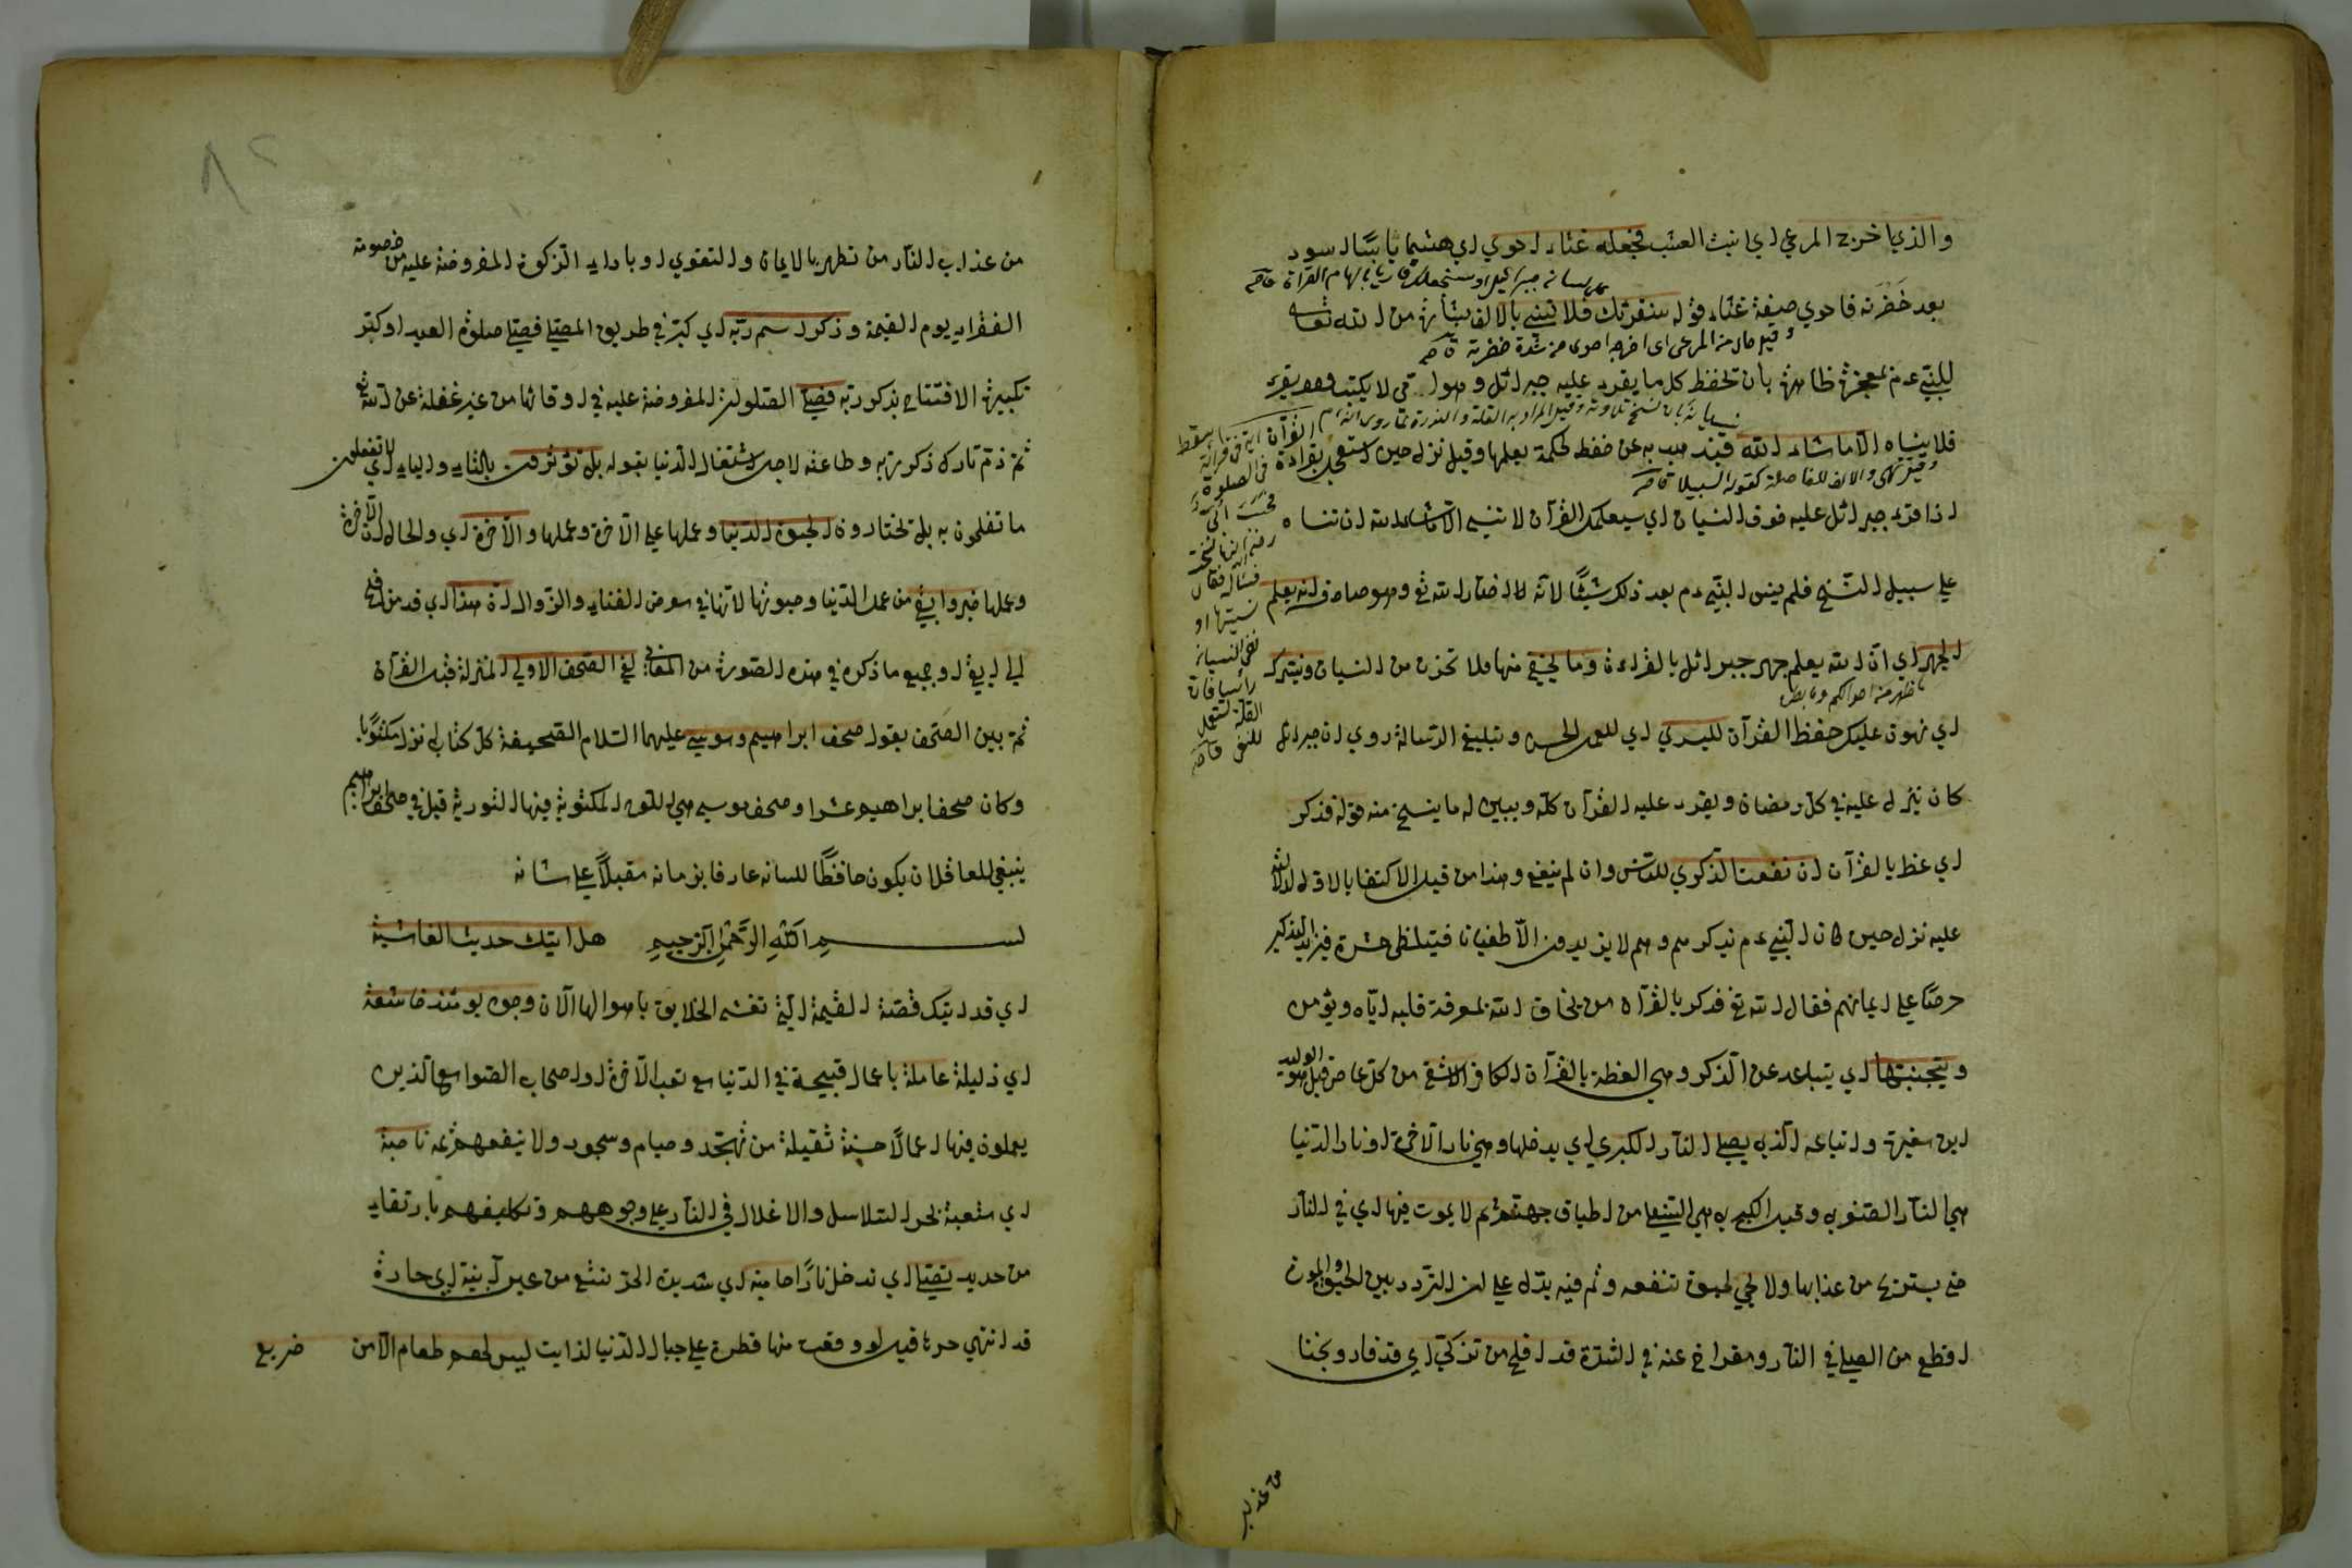 والذي اخرج المرعي اي انبت العشب فجعله غثاء احوي اي هشيما يابسا اسود
بعد خضرته فاحوي صفة غثاء قوله سنقرئك فلا تنسي بالالف بشارة من الله تعالى
وقيل حال من المرعى اى اخرجه احوى من شدة خضرته قاضى
للنبي عم بمعجزة ظاهرة بان تحفظ كل ما يقرء عليه جبرائل وهو امي لا يكتب وهو يقرء
فلا ينساه الا ما شاء الله فيذهب به عن حفظ لحكمة يعلمها وقيل نزل حين استعجل بقراءة
اذا قرء جبرائل عليه خوف النسيان اي سيعلمك القرآن لا تنسي الا ما شاء الله ان تنساه
علي سبيل النسخ فلم ينس النبي عم بعد ذلك شيئًا لانه اخبار الله تع وهو صادق انه يعلم
الجهر اي ان الله يعلم جهر جبرائل بالقراءة وما يخفي منها فلا تحزن من النسيان ونيسرك
اي نهون عليك حفظ القرآن لليسري اي للعمل الحسن وتبليغ الرسالة روي ان جبرائل
كان ينزل عليه في كل رمضان ويقرء عليه القرآن كله ويبين له ما ينسخ منه قوله فذكر
اي عظ بالقرآن ان نفعت الذكري للناس وان لم ينفع وهذا من قبيل الاكتفا بالاول لدلالته
عليه نزل حين كان النبي عم يذكرهم وهم لا يزيدون الا طغيانا فيتلظى حسرة فيزيد التذكير
حرصًا علي ايمانهم فقال الله تع فذكر بالقرآن من يخاف الله بمعرفة قلبه اياه ويؤمن
ويتجنبها اي يتباعد عن الذكر وهي العظة بالقرآن الكافر الاشقي من كل عاص قيل هو الوليد
ابن مغيرة واتباعه الذي يصلي النار الكبري اي يدخلها وهي نار الآخرة او نار الدنيا
هي النار الصغري وقيل الكبري هي السفلي من اطباق جهنم ثم لا يموت فيها اي في النار
حتي يستريح من عذابها ولا يحيي لحيوة تنفعه وثم فيه يدل علي ان التردد بين الحيوة والموت
افظع من الصلي في النار ومتراخ عنه في الشدة قد افلح من تزكي اي قد فاز ونجا
من عذاب
من عذاب النار من تطهر بالايمان والتقوي او باداء الزكوة المفروضة عليه من خصومة
الفقراء يوم القيمة وذكر اسم ربه اي كبر في طريق المصلي فصلي صلوة العيد او كبر
تكبيرة الافتتاح بذكر ربه فصلي الصلوات المفروضة عليه في اوقاتها من غير غفلة عن الله تع
ثم ذم تارك ذكر ربه وطاعته لاجل اشتغال الدنيا بقوله بل تؤثرون بالتاء والياء اي لا تفعلون
ما تفلحون به بل تختارون الحيوة الدنيا وعملها علي الآخرة وعملها والآخرة اي والحال ان الآخرة
وعملها خير وابقي من عمل الدنيا وحيوتها لانها في معرض الفناء والزوال ان هذا اي قد من افلح
الي ابقي او جميع ما ذكره في هذه السورة من المعاني لفي الصحف الاولي المنزلة قبل القرآن
ثم بين الصحف بقوله صحف ابراهيم وموسي عليهما السلام الصحيفة كل كتاب نزل مكتوبًا
وكان صحف ابراهيم عشرا وصحف موسي هي اللوح المكتوبة فيها التورية قيل في صحف ابراهيم
ينبغي للعاقل ان يكون حافظًا للسانه عارفا بزمانه مقبلًا علي شانه
بسم الله الرحمن الرحيم هل اتيك حديث الغاشية
اي قد اتيك قصة القيمة التي تغشي الخلايق باهوالها الآن وجوه يومئذ خاشعة
اي ذليلة عاملة باعمال قبيحة في الدنيا مع تعب الآخرة او اصحاب الصوامع الذين
يعملون فيها اعمالًا حسنة ثقيلة من تهجد وصيام وسجود ولا ينفعهم ثمه ناصبة
اي متعبة بجر السلاسل والاغلال في النار علي وجوههم وتكليفهم بارتقاء
من حديد تصلي اي تدخل نارًا حامية اي شديدة الحر تسقي من عين آنية اي حارة
قد انتهي حرها قيل لو وقعت منها قطرة علي جبال الدنيا لذابت ليس لهم طعام الا من ضريع